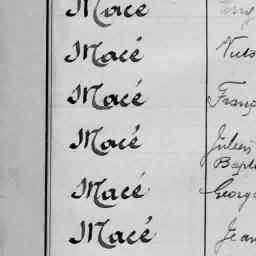 Macé
Macé
Macé
Macé Julien
Bapt
Macé George
Macé Jean